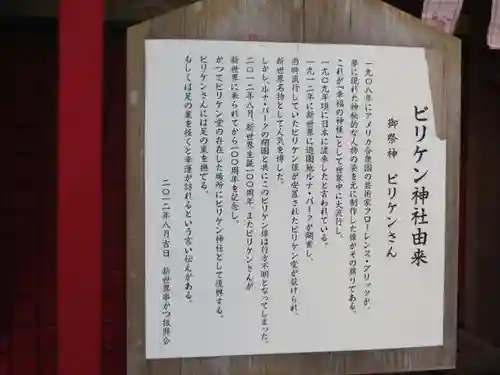 ビリケン神社由来
御祭神 ビリケンさん
一九〇八年にアメリカ合衆国の芸術家フローレンス・プリッツが、
夢に現れた神秘的な人物の姿を元に制作した像がその起りである。
これが「幸福の神様」として世界中に大流行し、
一九〇九年頃に日本に渡来したと言われている。
一九一二年に新世界に遊園地ルナ・パークが開業し、
当時流行していたビリケン像が安置されたビリケン堂が設けられ、
新世界名物として人気を博した。
しかし、ルナ・パークの閉園と共にこのビリケン像は行方不明となってしまった。
二〇一二年八月、新世界生誕一〇〇周年、またビリケンさんが
新世界に来られてから一〇〇周年を記念し、
かつてビリケン堂の存在した場所にビリケン神社として復興する。
ビリケンさんには足の裏を撫でる、
もしくは足の裏を掻くと幸運が訪れるという言い伝えがある。
二〇一二年八月吉日 新世界串かつ振興会